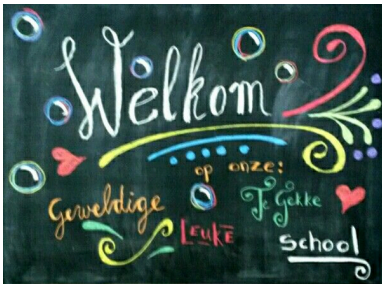 Welkom
op onze:
Geweldige
Te Gekke
LEUKE
School